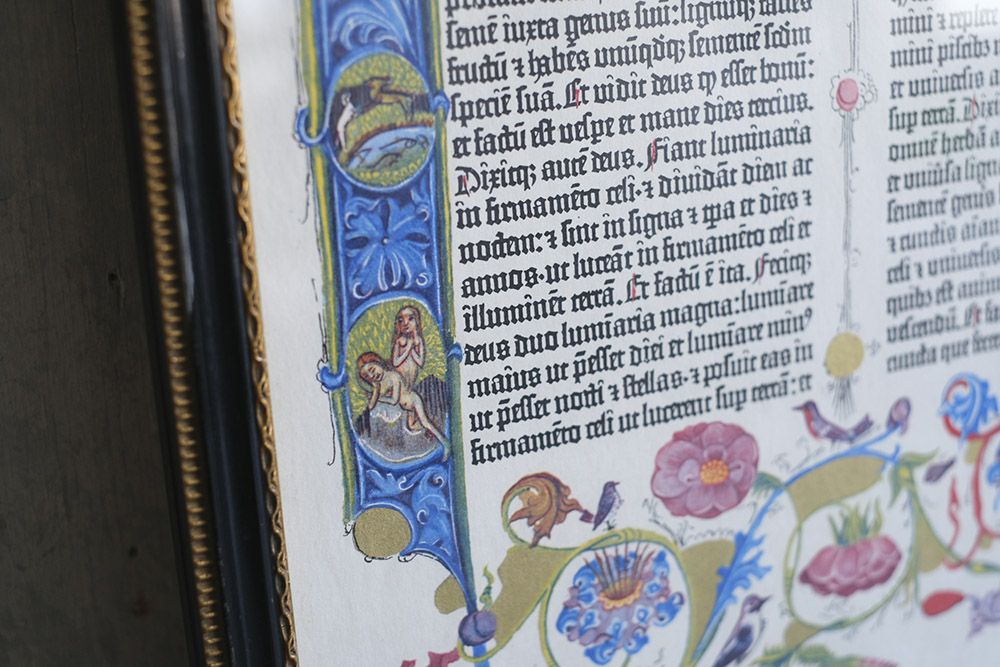 semē iuxta genus suū:lignūqꝫ faciēs
fructū ⁊ habēs unūqdqꝫ sementē scdm
speciē suā. Et vidit deus ꝙ esset bonū:
et factū est vespe et mane dies tercius.
Dixitqꝫ autē deus. Fiant luminaria
in firmamēto celi·⁊ dividāt diem ac
noctem:⁊ sint in signa ⁊ tpa et dies ⁊
annos·ut luceāt in firmamēto celi et
illuminēt terrā. Et factū ē ita. Fecitqꝫ
deus duo lumīaria magna:lumīare
maius ut p̄esset diei et lumīare minꝰ
ut p̄esset nocti ⁊ stellas·⁊ posuit eas in
firmamēto celi ut lucerent sup terrā: et
mini ⁊ replete
mini piscibꝫ m
et universis a
sup terrā. Dixi
omnē herbā a
et univsa lign
sementē genis
⁊ cunctis aīan
celi ⁊ universis
quibꝫ est anim
vescendū. Et fa
cuncta que fece